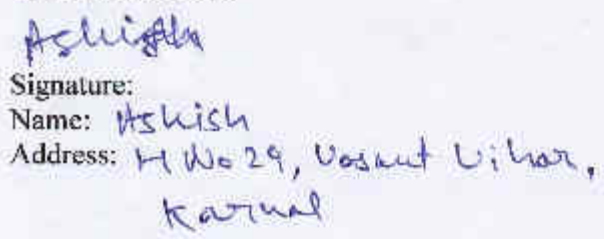 Ashish
Signature:
Name: Ashish
Address: H No 29, Vasant Vihar,
Karnal